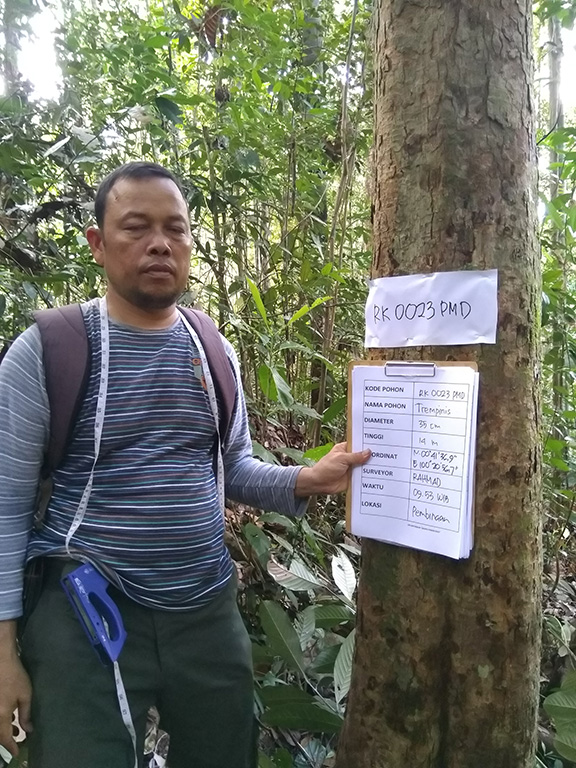 RK 0023 PMD
KODE POHON RK 0023 PMD
NAMA POHON Trempinis
DIAMETER 35 cm
TINGGI 14 m
OORDINAT N 00°41'36,9"
E 100°20'36,7"
SURVEYOR RAHMAD
WAKTU 09.53 WIB
LOKASI Pembinaan